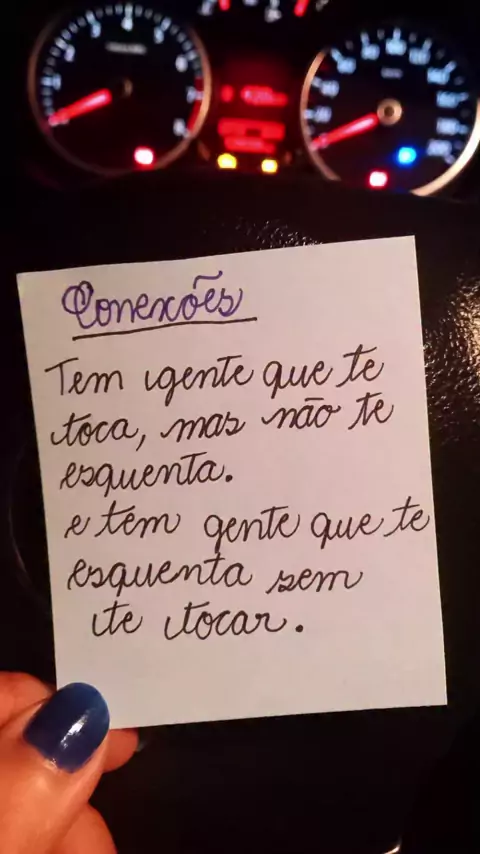 Conexões
Tem gente que te
toca, mas não te
esquenta.
e tem gente que te
esquenta sem
te tocar.